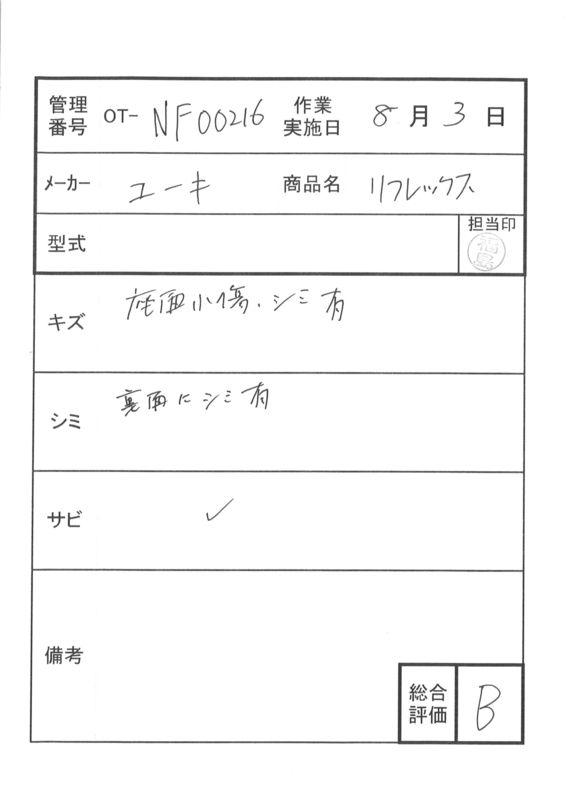 管理番号 OT- NF00216 作業実施日 8月3日
メーカー ユーキ 商品名 リフレックス
型式 担当印 福島
キズ 座面小傷、シミ有
シミ 裏面にシミ有
サビ ✓
備考
総合評価 B